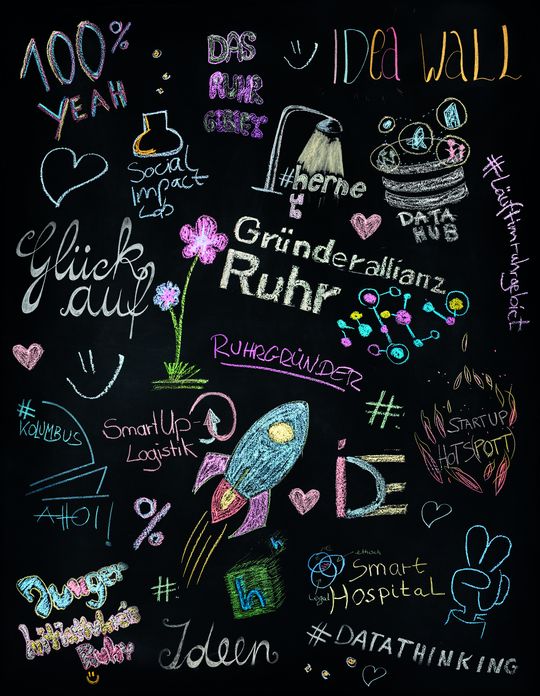 100%
YEAH
DAS
RUHR
GEBIET
IDea WaLL
Social
Impact
Lab
#herne
DATA
HUB
#läuftimruhrgebiet
Glück
auf
Gründerallianz
Ruhr
RUHRGRÜNDER
#
KOLUMBUS
AHOI!
SmartUp-
Logistik
#
STARTUP
HOTSPOTT
%
IDE
Junger
Initiativkreis
Ruhr
#
h
h
Ideen
ethisch
legal
Smart
Hospital
#DATATHINKING